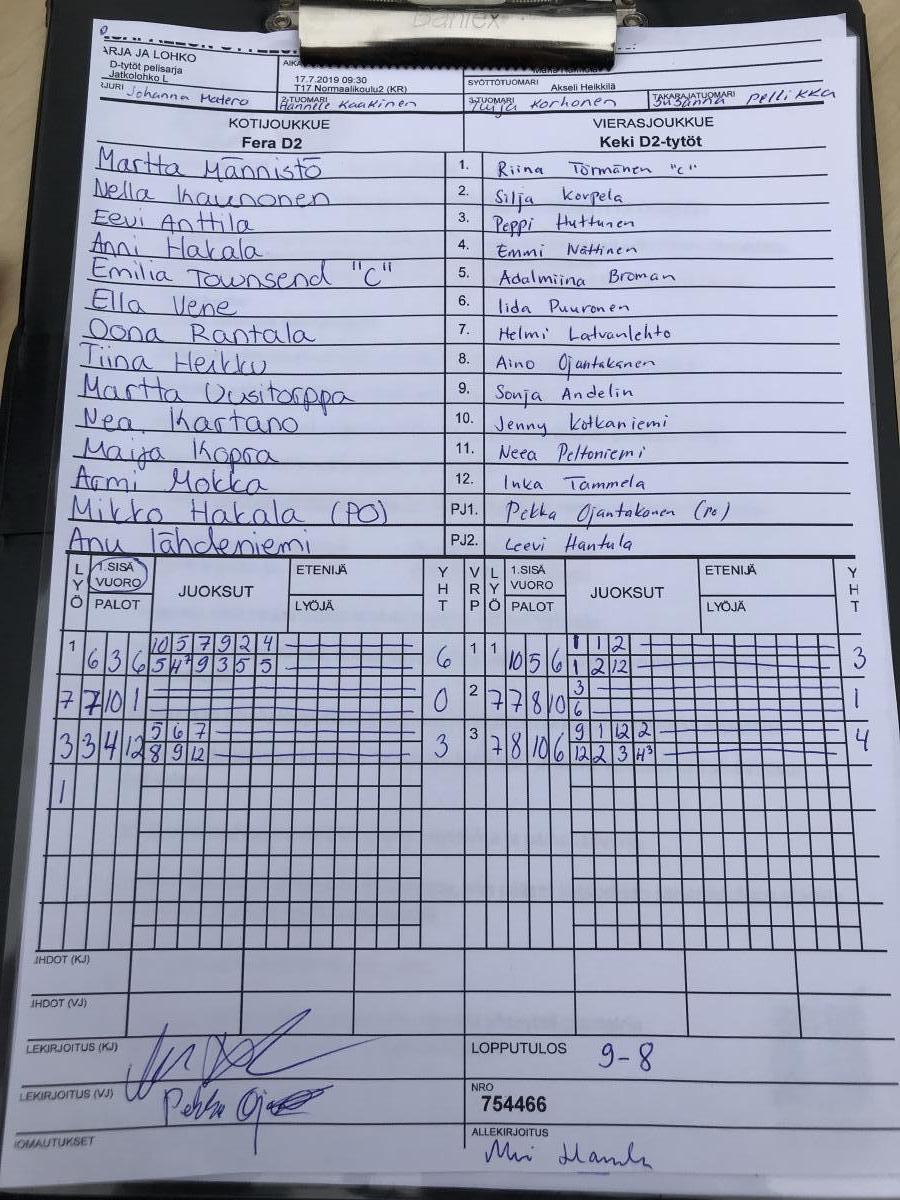 Dahlex
ARJA JA LOHKO
D-tytöt pelisarja
Jatkolohko L
AIKA
17.7.2019 09:30
T17 Normaalikoulu2 (KR)
SYÖTTÖTUOMARI
Akseli Heikkilä
RJURI Johanna Matero
2-TUOMARI Hannele Kaakinen
3-TUOMARI Tuija Korhonen
TAKARAJATUOMARI Susanna Pellikka
KOTIJOUKKUE VIERASJOUKKUE
Fera D2 Keki D2-tytöt
Martta Männistö 1. Riina Törmänen "C"
Nella Kaunonen 2. Silja Korpela
Eevi Anttila 3. Peppi Huttunen
Anni Hakala 4. Emmi Nättinen
Emilia Townsend "C" 5. Adalmiina Broman
Ella Vene 6. Iida Puuronen
Oona Rantala 7. Helmi Latvanlehto
Tiina Heikku 8. Aino Ojantakanen
Martta Uusitorppa 9. Sonja Andelin
Nea Kartano 10. Jenny Kotkaniemi
Maija Kopra 11. Neea Peltoniemi
Armi Mokka 12. Inka Tammela
Mikko Hakala (PO) PJ1. Pekka Ojantakanen (PO)
Anu Lähdeniemi PJ2. Leevi Hantula
LYÖ 1.SISÄ VUORO PALOT JUOKSUT ETENIJÄ LYÖJÄ YHT VRP LYÖ 1.SISÄ VUORO PALOT JUOKSUT ETENIJÄ LYÖJÄ YHT
1 10 5 7 9 2 4 1 1 1 1 2
6 3 6 5 4² 9 3 5 5 6 10 5 6 1 2 12 3
7 7 10 1 0 2 7 7 8 10 3 1
6
3 3 4 12 5 6 7 3 3 7 8 10 6 9 1 12 2 4
8 9 12 12 2 3 4³
1
IHDOT (KJ)
IHDOT (VJ)
LEKIRJOITUS (KJ)
LOPPUTULOS 9-8
LEKIRJOITUS (VJ) Pekka
NRO
754466
OMAUTUKSET
ALLEKIRJOITUS